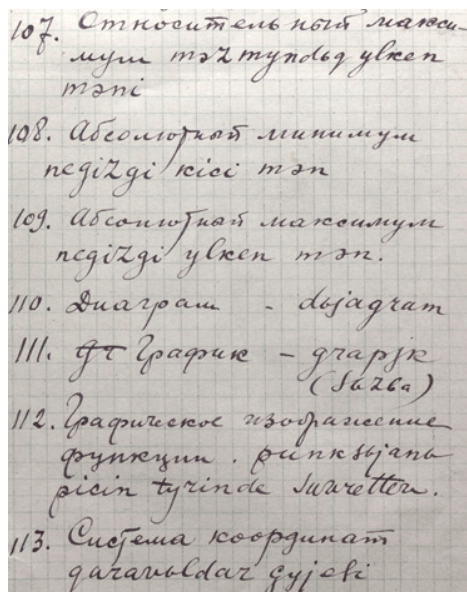 107. Относительный макси-
мум mәzmyndьq ylken
mәni
108. Абсолютный минимум
negizgi kici mәn
109. Абсолютный максимум
negizgi ylken mәn.
110. Диаграм - dыjagram
111. График - grapjk
(sьzba)
112. Графическое изображение
функции. punksьjanь
picin tyrinde suwretteu.
113. Система координат
qaravoldar çyjesi